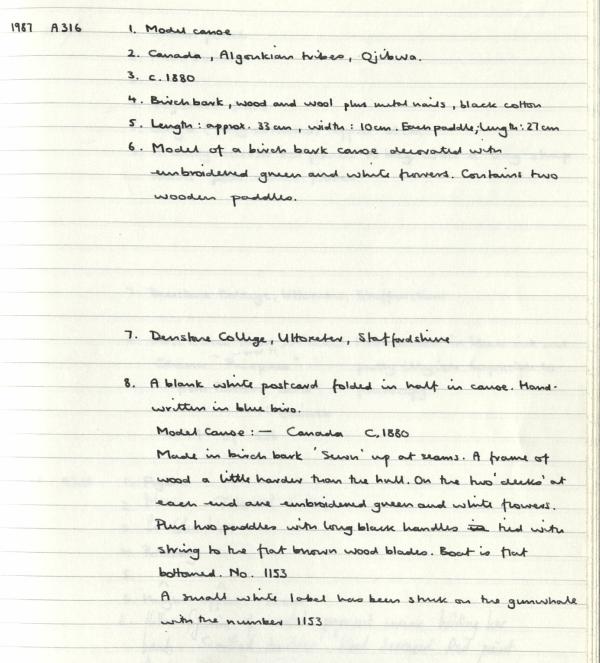 1987 A316 1. Model canoe
2. Canada, Algonkian tribes, Ojibwa.
3. c.1880
4. Birch bark, wood and wool plus metal nails, black cotton
5. Length: approx. 33cm, width: 10cm. Each paddle; length: 27cm
6. Model of a birch bark canoe decorated with
embroidered green and white flowers. Contains two
wooden paddles.
7. Denstone College, Uttoxeter, Staffordshire
8. A blank white postcard folded in half in canoe. Hand-
written in blue biro.
Model Canoe:— Canada C,1880
Made in birch bark 'Sewn' up at seams. A frame of
wood a little harder than the hull. On the two 'decks' at
each end are embroidered green and white flowers.
Plus two paddles with long black handles tied with
string to the flat brown wood blades. Boat is flat
bottomed. No. 1153
A small white label has been stuck on the gunwhale
with the number 1153